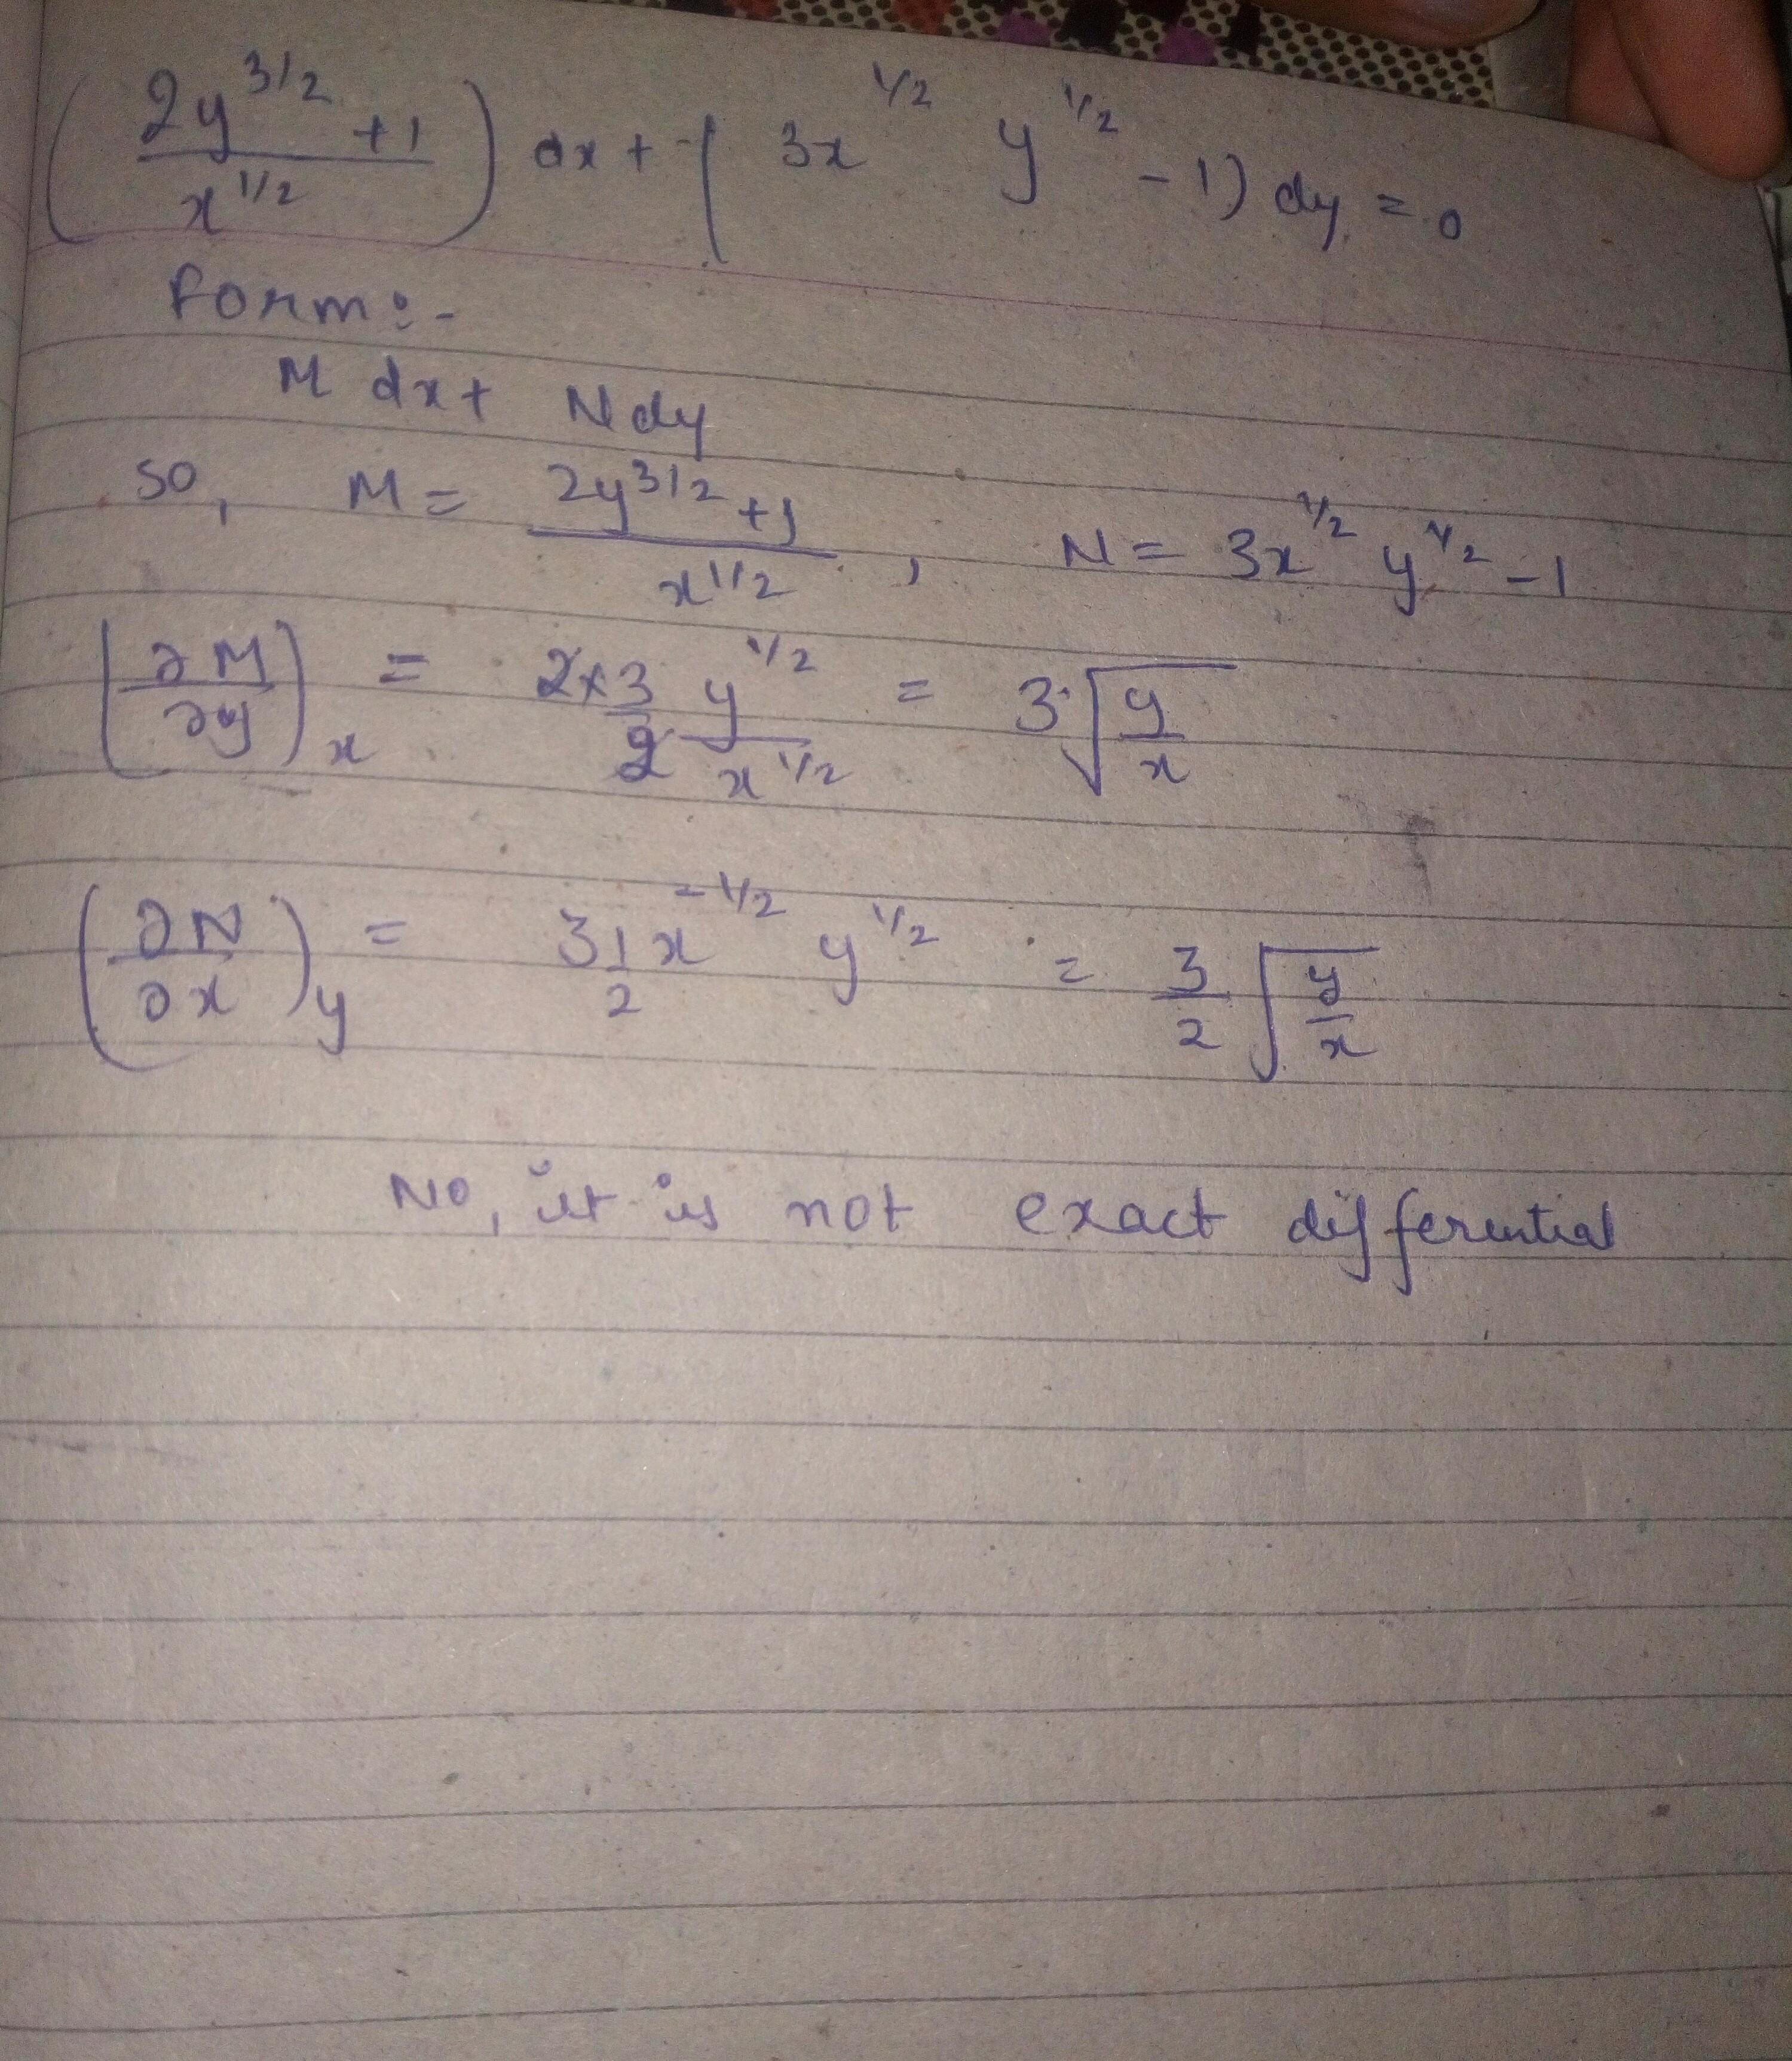 (2y^3/2 +1 / x^1/2) dx + (3x^1/2 y^1/2 - 1) dy = 0
Form:-
M dx + N dy
so, M = 2y^3/2 +1 / x^1/2 , N = 3x^1/2 y^1/2 - 1
(∂M/∂y)x = 2×3/2 y^1/2 / x^1/2 = 3√(y/x)
(∂N/∂x)y = 3 1/2 x^-1/2 y^1/2 = 3/2 √(y/x)
No, it is not exact differential